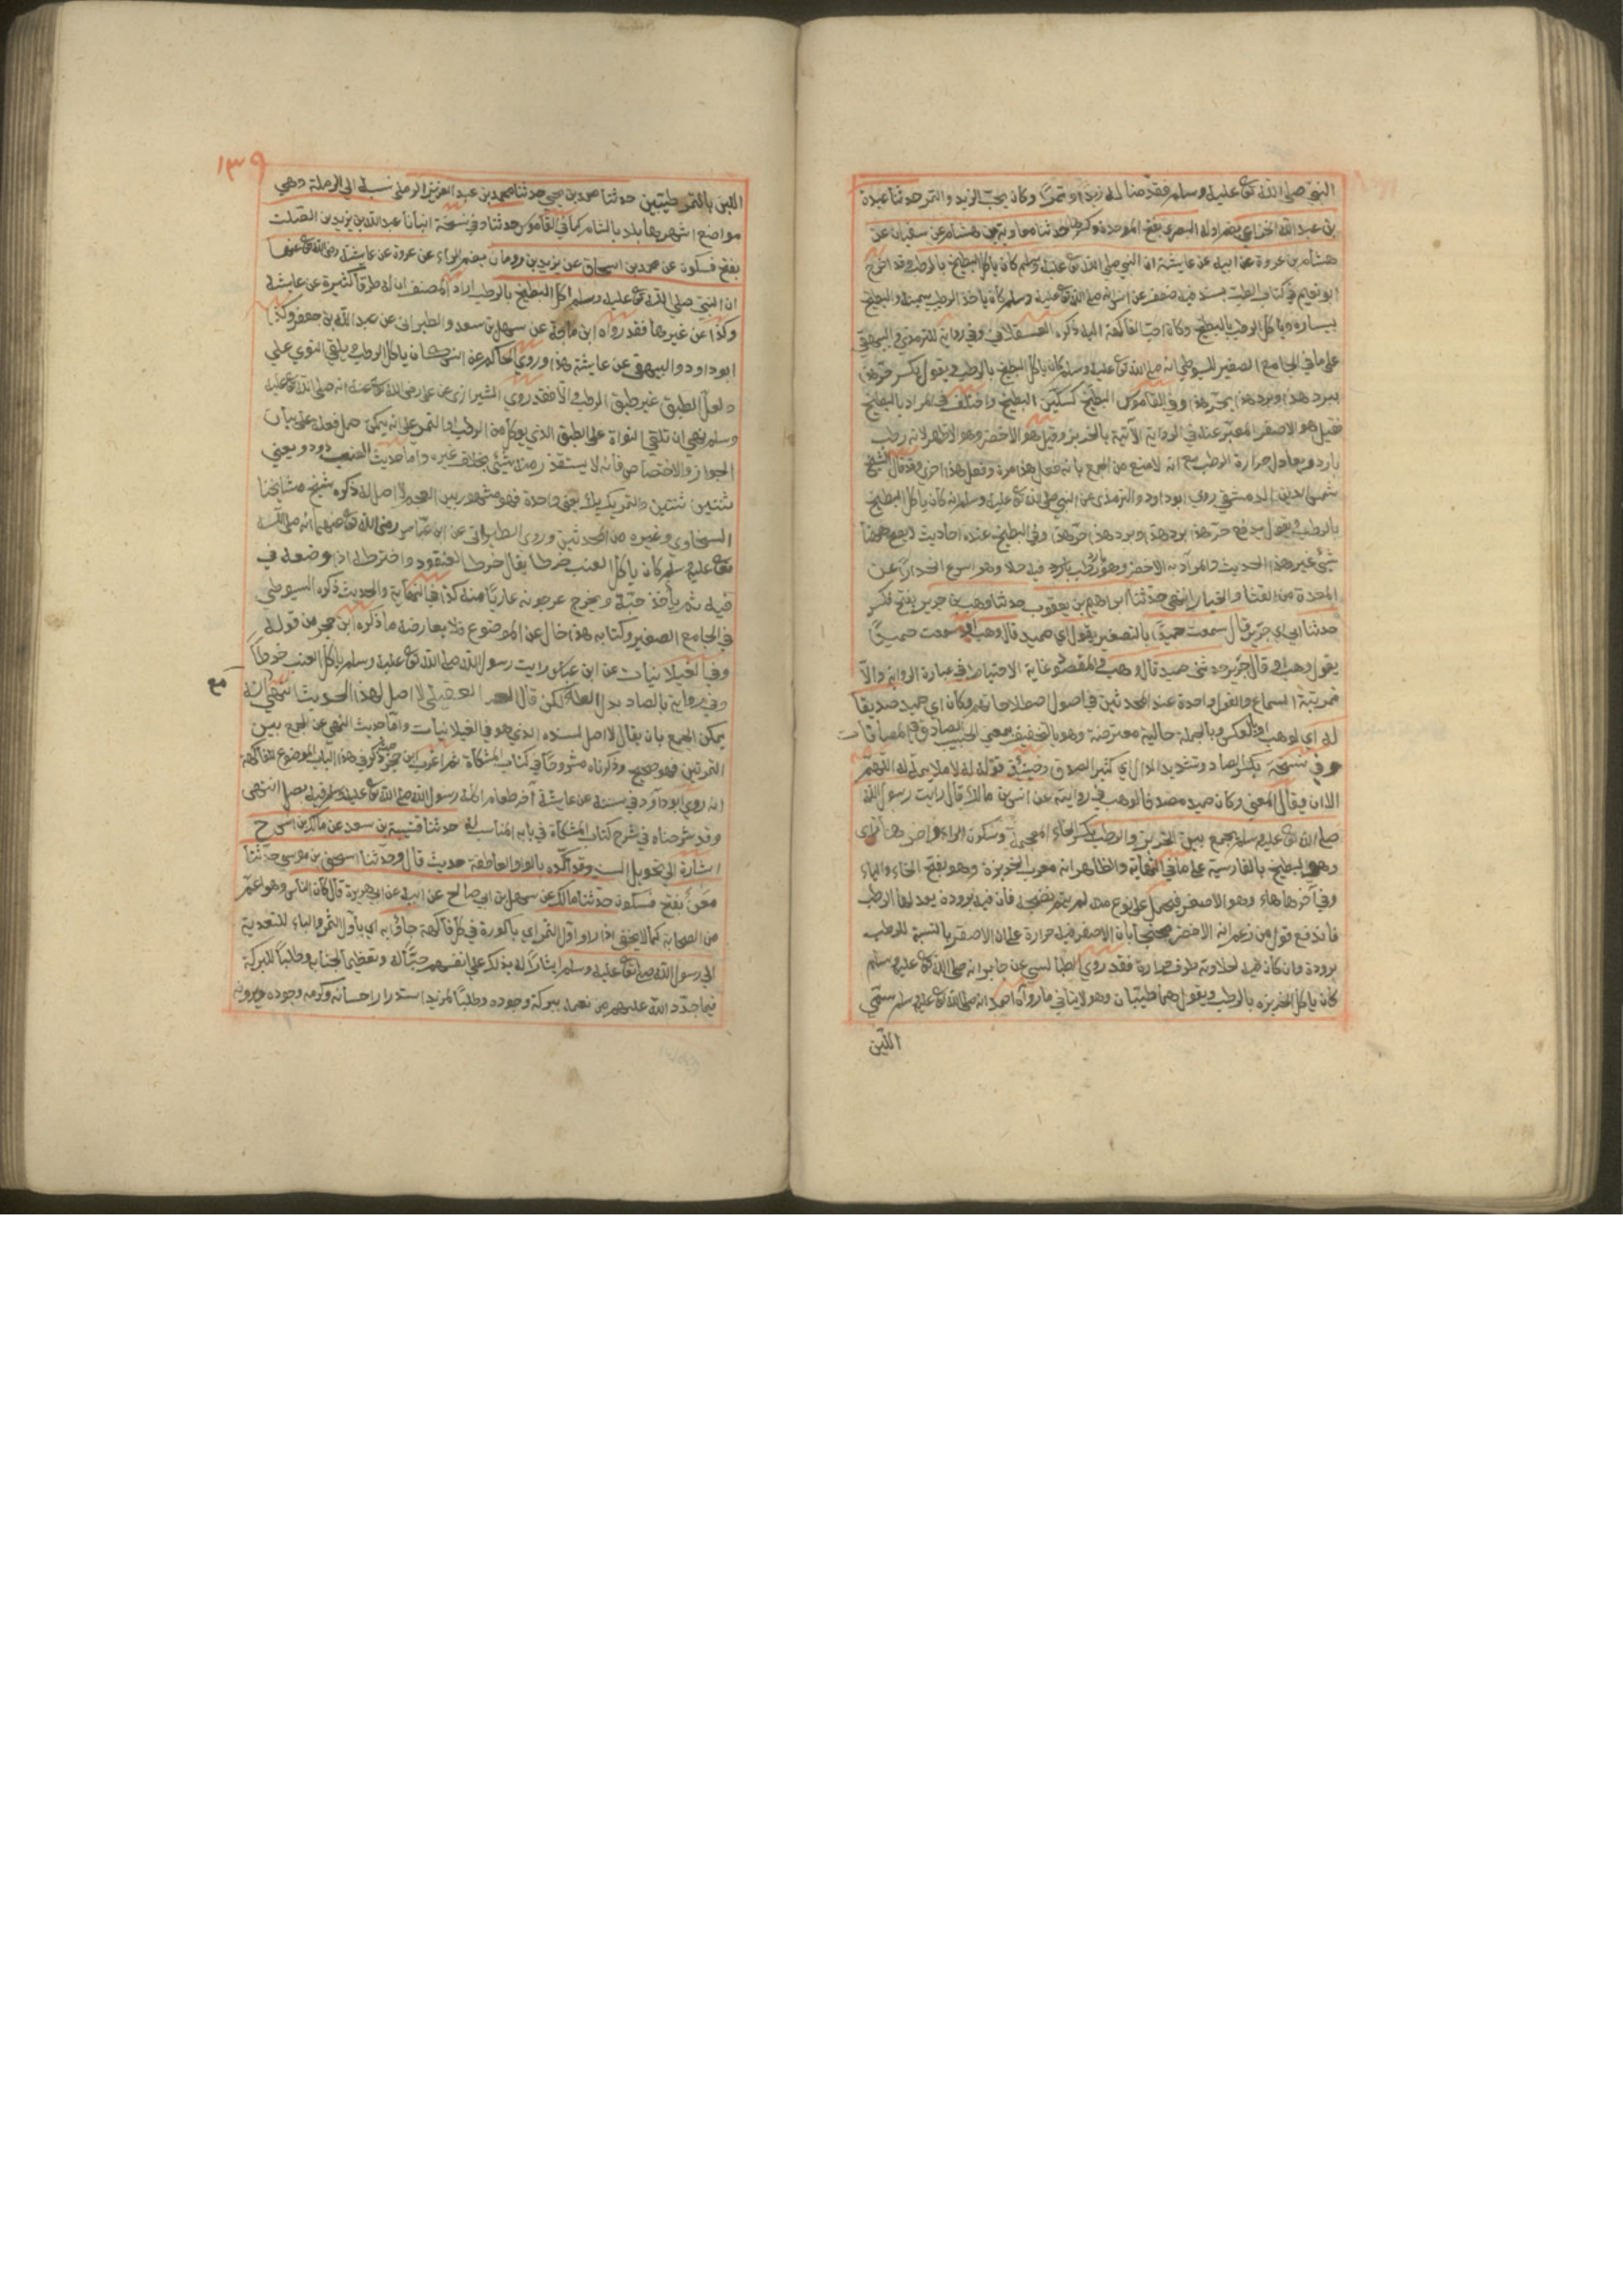 النبي صلى الله تع عليه وسلم فقدمنا له زبدا وتمرا وكان يحب الزبد والتمر حدثنا عبدة
بن عبد الله الخزاعي بضم اوله البصري بفتح الموحدة وكسرها حدثنا معاوية بن هشام عن سفيان عن
هشام بن عروة عن ابيه عن عايشة ان النبي صلى الله تع عليه وسلم كان ياكل البطيخ بالرطب وقد اخرج
ابو نعيم في كتاب الطب بسند فيه ضعف عن انس انه صلى الله تع عليه وسلم كان ياخذ الرطب بيمينه والبطيخ
بيساره وياكل الرطب بالبطيخ وكان احب الفاكهة اليه ذكره العسقلاني وفي رواية للترمذي والبيهقي
على ما في الجامع الصغير للسيوطي انه صلى الله تع عليه وسلم كان ياكل البطيخ بالرطب ويقول يكسر حر هذا
ببرد هذا وبرد هذا بحر هذا وفي القاموس البطيخ كسكين البطيخ واختلف في المراد بالبطيخ
فقيل هو الاصفر المعبر عنه في الرواية الآتية بالخربز وقيل هو الاخضر وهو الاظهر لانه رطب
بارد ويعادل حرارة الرطب مع انه لا منع من الجمع بانه فعل هذا مرة وفعل هذا اخرى وقد قال الشيخ
شمس الدين الدمشقي روى ابو داود والترمذي عن النبي صلى الله تع عليه وسلم انه كان ياكل البطيخ
بالرطب ويقول يدفع حر هذا برد هذا وبرد هذا حر هذا وفي البطيخ عنده احاديث لا يصح منها
شيء غير هذا الحديث والمراد به الاخضر وهو بارد رطب فيه جلا وهو اسرع انحدارا عن
المعدة من القثا والخيار انتهى حدثنا ابراهيم بن يعقوب حدثنا وهب بن جرير بفتح فكسر
حدثنا ابي اي جرير قال سمعت حميدا بالتصغير يقول اي حميد قال وهب او سمعت حميدا
يقول وهب او قال جرير حدثني حميد قال وهب والمقصود غاية الاحتياط في عبارة الرواية والا
فمرتبة السماع والقول واحدة عند المحدثين في اصول اصطلاحاتهم وكان اي حميد صديقا
له اي لوهب او بالعكس وبالجملة حالية معترضة وهو بالتخفيف بمعنى الحبيب الصادق في المصافات
وفي نسخة بكسر الصاد وتشديد الدال اي كثير الصدق وحينئذ في قوله له لا ملايمة له اللهم
الا ان يقال المعنى وكان حميد مصدقا لوهب في روايته عن انس بن مالك قال رايت رسول الله
صلى الله تع عليه وسلم يجمع بين الخربز والرطب بكسر الخاء المعجمة وسكون الراء واخرها زاي
وهو البطيخ بالفارسية على ما في النهاية والظاهر انه معرب الخربزة وهو بفتح الخاء والباء
وفي آخرها هاء وهو الاصفر فيحمل على نوع منه لم يتم نضجه فان فيه برودة يعدلها الرطب
فاندفع قول من زعم انه الاخضر محتجا بان الاصفر فيه حرارة على ان الاصفر بالنسبة للرطب
برودة وان كان فيه لحلاوته طرف حرارة فقد روى الطيالسي عن جابر انه صلى الله تع عليه وسلم
كان ياكل الخربزه بالرطب ويقول هما طيبان وهو لا ينافي ما رواه احمد انه صلى الله تع عليه وسلم سمى
اللبن
١٣٩
اللبن بالتمر طيبين حدثنا محمد بن يحيى حدثنا محمد بن عبد العزيز الرملي نسبة الى الرملة وهي
مواضع اشهرها بلد بالشام كما في القاموس حدثنا وفي نسخة انبأنا عبد الله بن يزيد بن الصلت
بفتح فسكون عن محمد بن اسحاق عن يزيد بن رومان بضم الراء عن عروة عن عايشة رضي الله تع عنها
ان النبي صلى الله تع عليه وسلم اكل البطيخ بالرطب اراد المصنف ان له طرقا كثيرة عن عايشة
وكذا عن غيرها فقد رواه ابن ماجة عن سهل بن سعد والطبراني عن عبد الله بن جعفر وكذا
ابو داود والبيهقي عن عايشة هذا وروى الحاكم عن انس كان ياكل الرطب ويلقي النوى على
ولعل الطبق غير طبق الرطب والا فقد روى الشيرازي عن علي رضي الله تع عنه انه صلى الله تع عليه
وسلم نهى ان تلقى النواة على الطبق الذي يوكل منه الرطب او التمر على انه يمكن حمل فعله على بيان
الجواز والاختصاص فانه لا يستقذر منه شيئ بخلاف غيره واما حديث العنب دو دو يعني
ثنتين ثنتين والتمر يك يك يعني واحدة فهو مشهور بين العجم لا اصل له ذكره شيخ مشايخنا
السخاوي وغيره من المحدثين وروى الطبراني عن ابن عباس رضي الله تع عنهما انه صلى الله
تعا عليه وسلم كان ياكل العنب خرطا يقال خرط العنقود واخترطه اذا وضعه في
فيه ثم يأخذ حبه ويخرج عرجونه عاريا منه كذا في النهاية والحديث ذكره السيوطي
في الجامع الصغير وكتابه هذا خال عن الموضوع فلا يعارضه ما ذكره ابن حجر من قوله
وفي الغيلانيات عن ابن عباس رايت رسول الله صلى الله تع عليه وسلم ياكل العنب خرطا
وفي رواية بالصاد بدل الطاء لكن قال العقيلي لا اصل لهذا الحديث انتهى انه
مع
يمكن الجمع بان يقال لا اصل لسنده الذي هو في الغيلانيات واما حديث النهي عن الجمع بين
التمرتين فهو صحيح وذكرناه مشروحا في كتاب المشكاة ثم اغرب ابن حجر حيث ذكر في هذا الباب الموضوع للفاكهة
انه روى ابو داود في سننه عن عايشة آخر طعام اكله رسول الله صلى الله تع عليه وسلم فيه بصل انتهى
وقد شرحناه في شرح كتاب المشكاة في بابه المناسب له حدثنا قتيبة بن سعد عن مالك بن انس ح
اشارة الى تحويل السند وقد اكده بالواو العاطفة حديث قال وحدثنا اسحق بن موسى حدثنا
معن بفتح فسكون حدثنا مالك عن سهل بن ابي صالح عن ابيه عن ابي هريرة قال كان الناس وهو اعم
من الصحابة كما لا يخفى اذا راو اول الثمر اي باكورة في كل فاكهة جاؤا به اي باول الثمر والباء للتعدية
الى رسول الله صلى الله تعا عليه وسلم ايثارا له بذلك على انفسهم حبا له وتعظيما لجنابه وطلبا للبركة
فيما جدد الله عليهم من نعمه ببركة وجوده وطلبا لمزيد استدرار احسانه وكرمه وجوده ويرونه